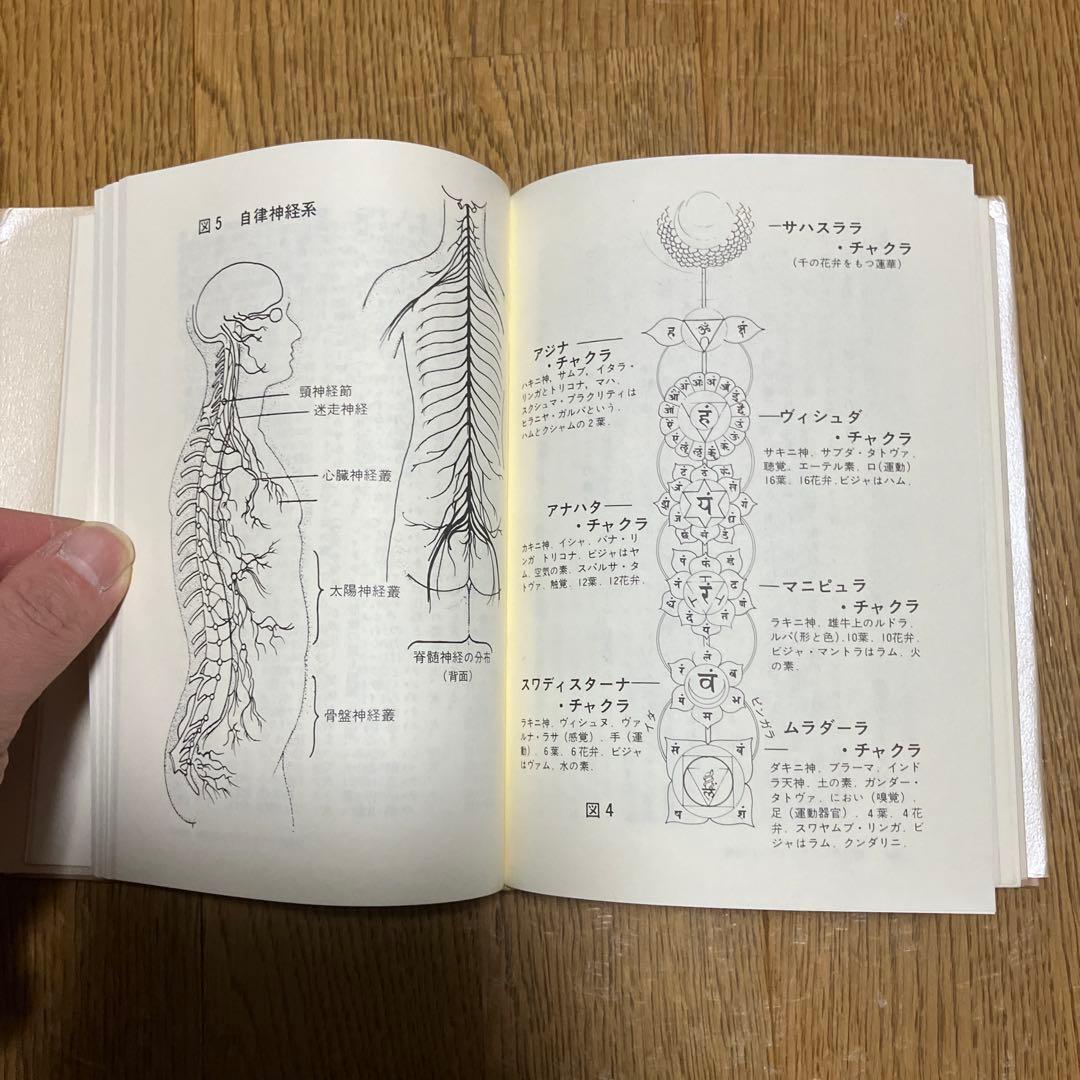 図5 自律神経系
頸神経節
迷走神経
心臓神経叢
太陽神経叢
骨盤神経叢
脊髄神経の分布
(背面)
サハスララ
・チャクラ
(千の花弁をもつ蓮華)
アジナ
・チャクラ
ハキニ神、サムブ、イタラ・
リンガとトリコナ、マハ、
スクシュマ・プラクリティは
ヒラニヤ・ガルバという.
ハムとクシャムの2葉.
ヴィシュダ
・チャクラ
サキニ神、サブダ・タトヴァ、
聴覚、エーテル素、口(運動)
16葉、16花弁.ビジャはハム.
アナハター
・チャクラ
カキニ神、イシャ、バナ・リ
ンガ トリコナ、ビジャはヤ
ム、空気の素、スパルサ・タ
トヴァ、触覚、12葉、12花弁.
マニピュラ
・チャクラ
ラキニ神、雄牛上のルドラ、
ルパ(形と色).10葉、10花弁.
ビジャ・マントラはラム、火
の素.
スワディスターナ
・チャクラ
ラキニ神、ヴィシュヌ、ヴァ
ルナ・ラサ(感覚)、手(運
動)、6葉、6花弁、ビジャ
はヴァム、水の素.
イダ
ピンガラ
ムラダーラ
・チャクラ
ダキニ神、ブラーマ、インド
ラ天神、土の素、ガンダー・
タトヴァ、におい(嗅覚)、
足(運動器官)、4葉、4花
弁、スワヤムブ・リンガ、ビ
ジャはラム、クンダリニ.
ह ॐ क्षं
हं
यं
रं
वं
लं
図4